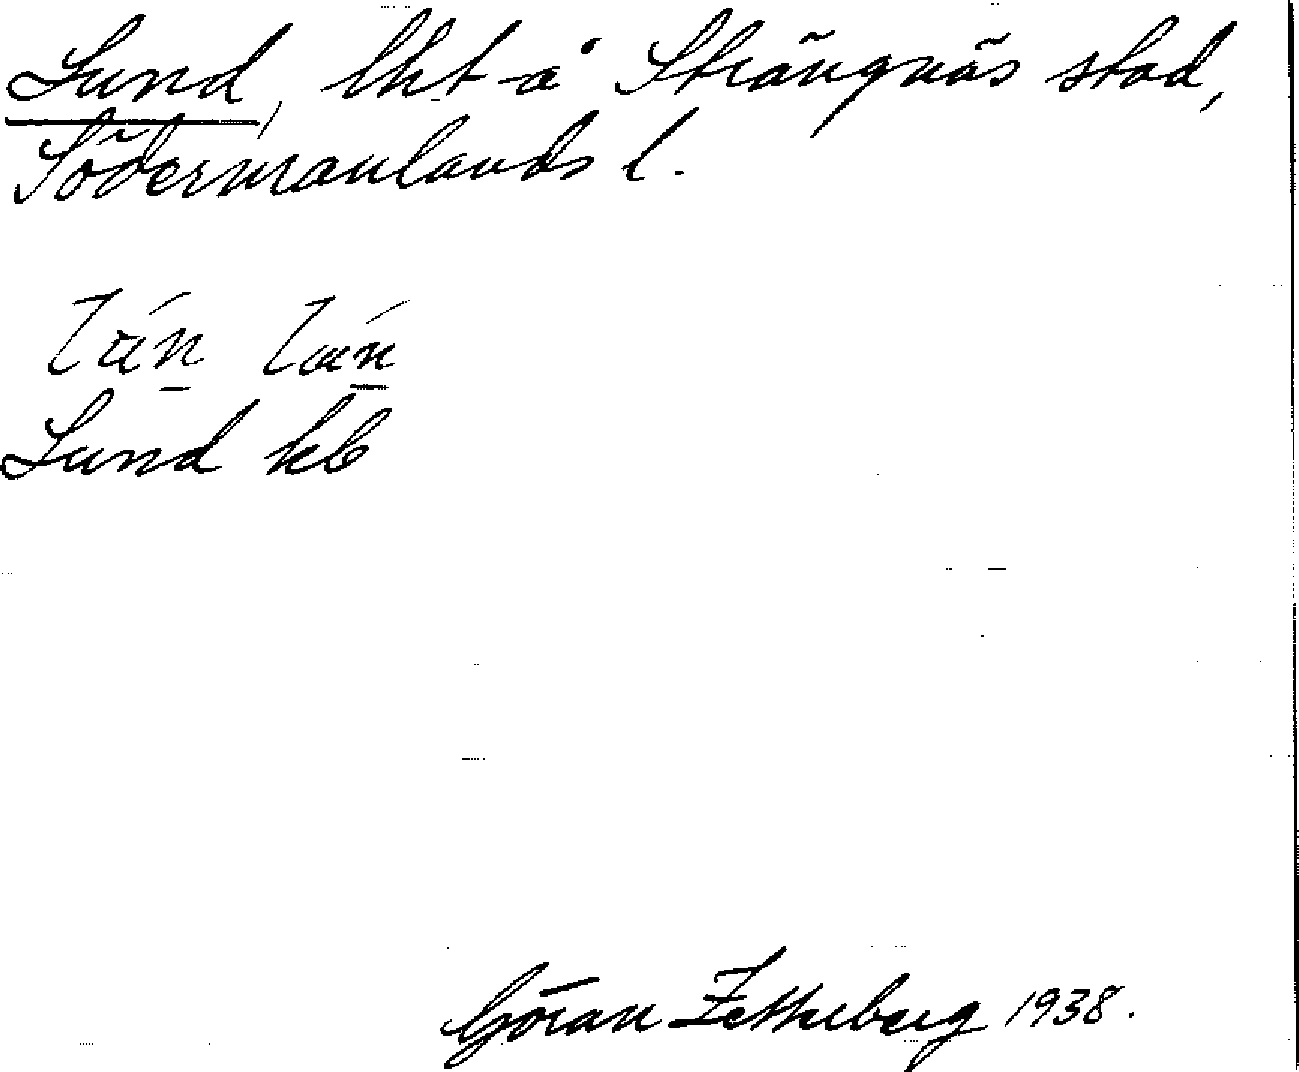 Lund, lht å Strängnäs stad,
Södermanlands l.
Lund kb
Göran Zetterberg 1938.